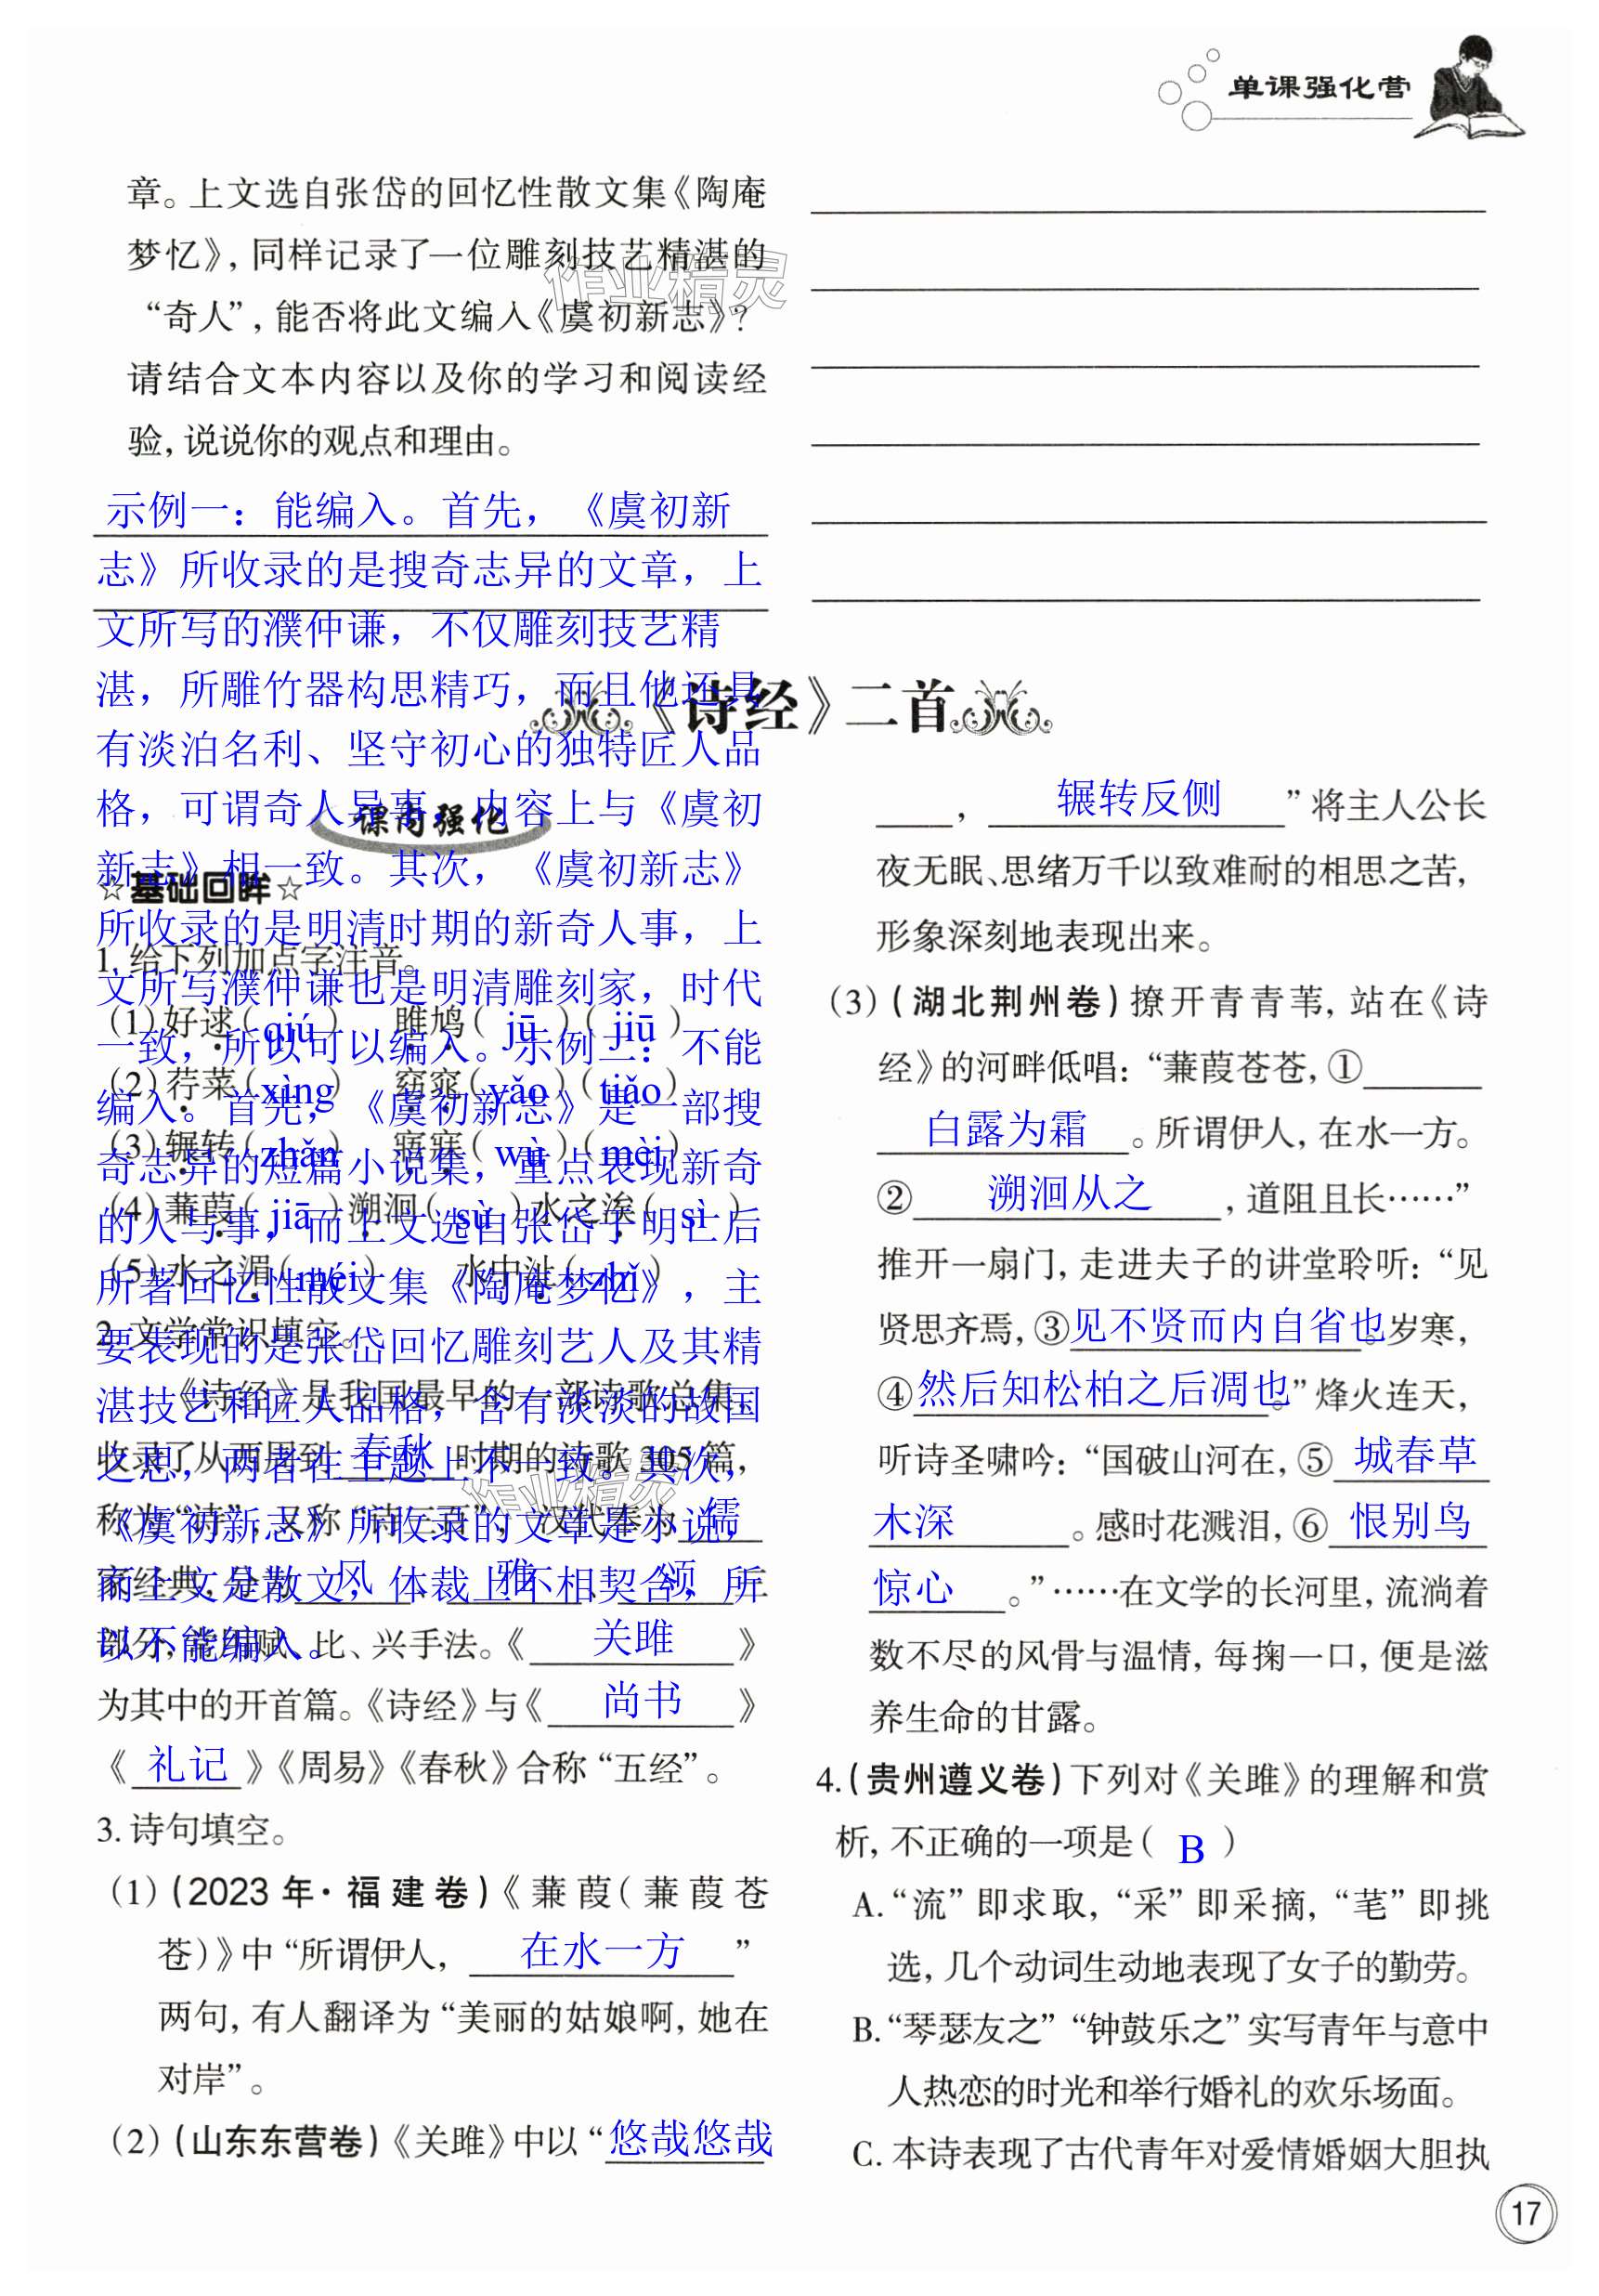 单课强化营
章。上文选自张岱的回忆性散文集《陶庵
梦忆》，同样记录了一位雕刻技艺精湛的
“奇人”，能否将此文编入《虞初新志》？
请结合文本内容以及你的学习和阅读经
验，说说你的观点和理由。
示例一：能编入。首先，《虞初新
志》所收录的是搜奇志异的文章，上
文所写的濮仲谦，不仅雕刻技艺精
湛，所雕竹器构思精巧，而且他还具
有淡泊名利、坚守初心的独特匠人品
格，可谓奇人异事，内容上与《虞初
新志》相一致。其次，《虞初新志》
所收录的是明清时期的新奇人事，上
文所写濮仲谦也是明清雕刻家，时代
一致，所以可以编入。示例二：不能
编入。首先，《虞初新志》是一部搜
奇志异的短篇小说集，重点表现新奇
的人与事，而上文选自张岱于明亡后
所著回忆性散文集《陶庵梦忆》，主
要表现的是张岱回忆雕刻艺人及其精
湛技艺和匠人品格，含有淡淡的故国
之思，两者在主题上不一致。其次，
《虞初新志》所收录的文章是小说，
而上文是散文，体裁上不相契合，所
以不能编入。
作业精灵
《诗经》二首
课内强化
☆基础回眸☆
1. 给下列加点字注音。
(1)好逑( qiú ) 雎鸠( jū )( jiū )
(2)荇菜( xìng ) 窈窕( yǎo )( tiǎo )
(3)辗转( zhǎn ) 寤寐( wù )( mèi )
(4)蒹葭( jiā ) 溯洄( sù ) 水之涘( sì )
(5)水之湄( méi ) 水中沚( zhǐ )
2. 文学常识填空。
《诗经》是我国最早的一部诗歌总集，
收录了从西周到 春秋 时期的诗歌 305 篇，
称为“诗”，又称“诗三百”，汉代奉为 儒
家经典，分为 风 、 雅 、 颂 三
部分，常用赋、比、兴手法。《 关雎 》
为其中的开首篇。《诗经》与《 尚书 》
《 礼记 》《周易》《春秋》合称“五经”。
作业精灵
3. 诗句填空。
(1)(2023 年·福建卷)《蒹葭(蒹葭苍
苍)》中“所谓伊人， 在水一方 ”
两句，有人翻译为“美丽的姑娘啊，她在
对岸”。
(2)(山东东营卷)《关雎》中以“ 悠哉悠哉
， 辗转反侧 ”将主人公长
夜无眠、思绪万千以致难耐的相思之苦，
形象深刻地表现出来。
(3)(湖北荆州卷)撩开青青苇，站在《诗
经》的河畔低唱：“蒹葭苍苍，①
白露为霜 。所谓伊人，在水一方。
② 溯洄从之 ，道阻且长……”
推开一扇门，走进夫子的讲堂聆听：“见
贤思齐焉，③见不贤而内自省也。岁寒，
④然后知松柏之后凋也。”烽火连天，
听诗圣啸吟：“国破山河在，⑤ 城春草
木深 。感时花溅泪，⑥ 恨别鸟
惊心 。”……在文学的长河里，流淌着
数不尽的风骨与温情，每掬一口，便是滋
养生命的甘露。
4.(贵州遵义卷)下列对《关雎》的理解和赏
析，不正确的一项是( B )
A.“流”即求取，“采”即采摘，“芼”即挑
选，几个动词生动地表现了女子的勤劳。
B.“琴瑟友之”“钟鼓乐之”实写青年与意中
人热恋的时光和举行婚礼的欢乐场面。
C. 本诗表现了古代青年对爱情婚姻大胆执
17